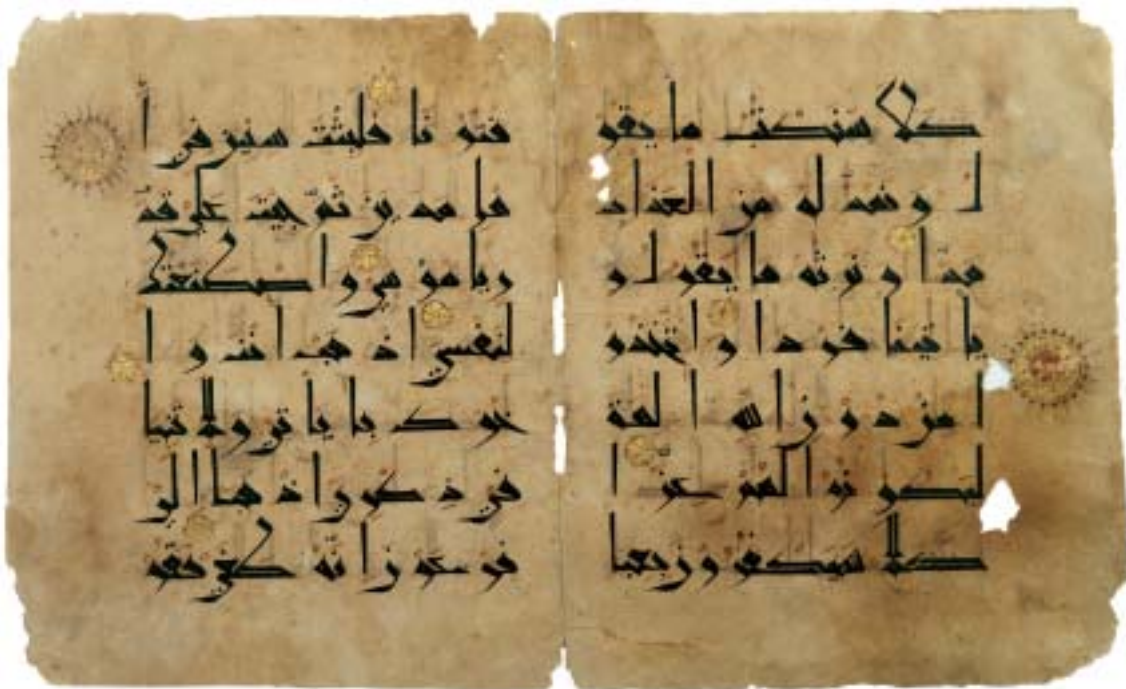 كلا سنكتب ما يقو
ل ونمد له من العذاب
مدا ونرثه ما يقول و
ياتينا فردا واتخذو
ا من دون الله الهة
ليكونوا لهم عزا
كلا سيكفرون بعبا
فتونا فلبثت سنين في ا
هل مدين ثم جئت على قد
ر يا موسى واصطنعتك
لنفسي اذهب انت وا
خوك باياتي ولا تنيا
في ذكري اذهبا الى
فرعون انه طغى فقو